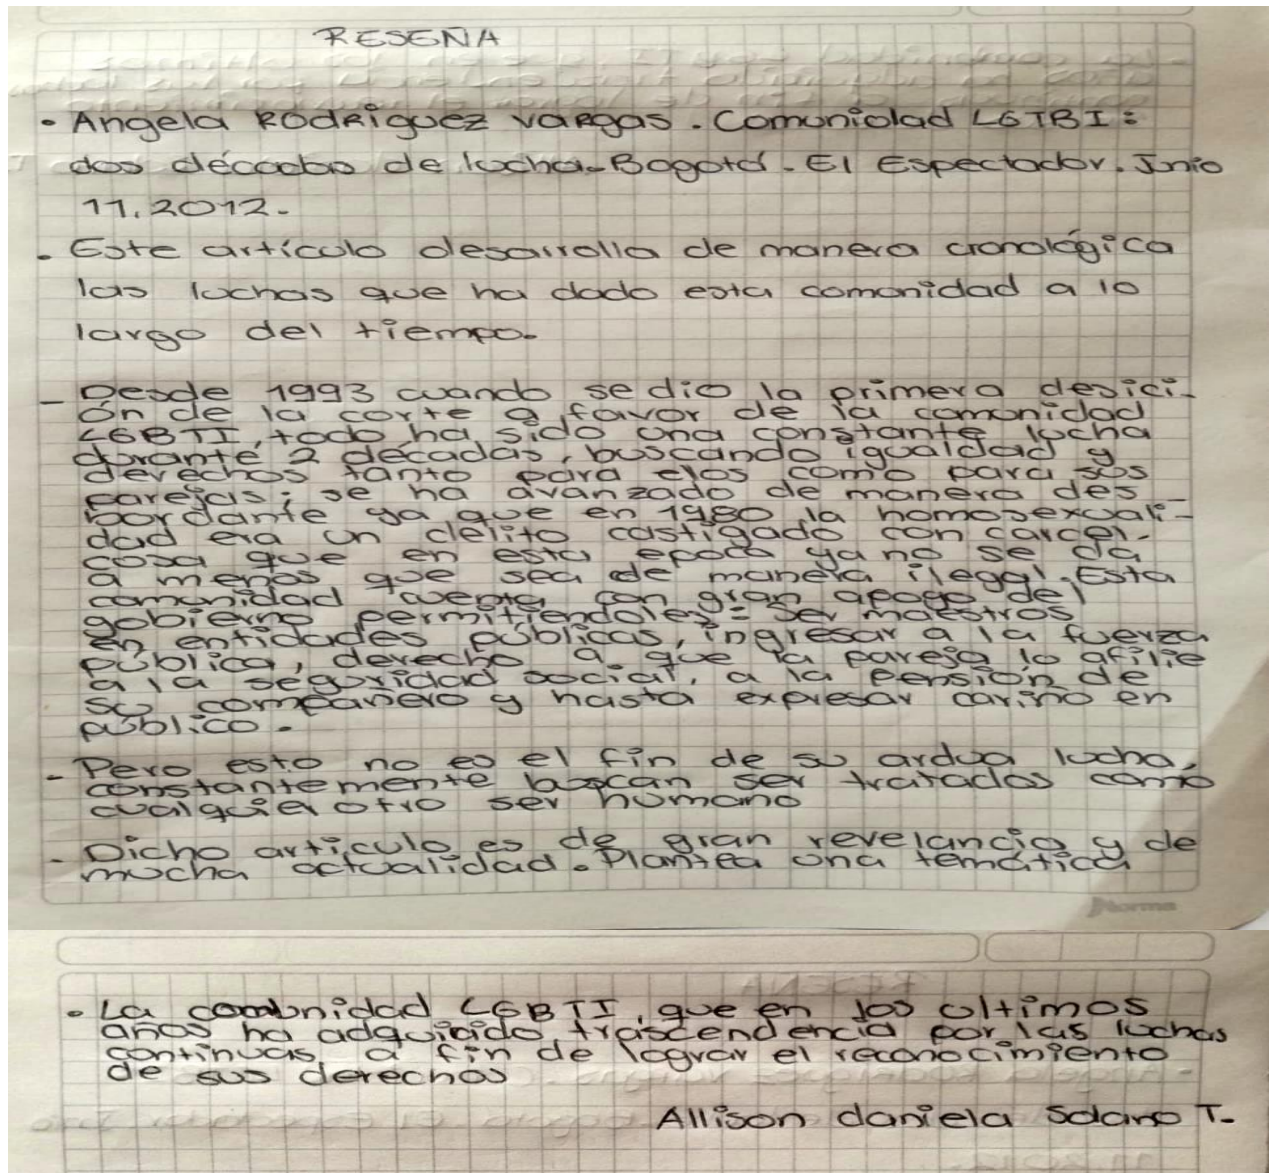 RESEÑA
• Angela Rodriguez Vargas. Comunidad LGTBI:
dos décadas de lucha. Bogotá. El Espectador. Junio
11.2012.
• Este artículo desarrolla de manera cronológica
las luchas que ha dado esta comunidad a lo
largo del tiempo.
- Desde 1993 cuando se dio la primera desici-
ón de la corte a favor de la comunidad
LGBTI, todo ha sido una constante lucha
durante 2 décadas, buscando igualdad y
derechos tanto para elos como para sus
parejas; se ha avanzado de manera des-
bordante ya que en 1980 la homosexuali-
dad era un delito castigado con carcel.
cosa que en esta epoca ya no se da
a menos que sea de manera ilegal. Esta
comunidad cuenta con gran apoyo del
gobierno permitiendoles: Ser maestros
en entidades públicas, ingresar a la fuerza
pública, derecho a que la pareja lo afilie
a la seguridad social, a la pensión de
su compañero y hasta expresar cariño en
público.
- Pero esto no es el fin de su ardua lucha,
constantemente buscan ser tratados como
cualquier otro ser humano
- Dicho articulo es de gran revelancia y de
mucha actualidad. Plantea una temática
Norma
• La comunidad LGBTI, que en los ultimos
años ha adquirido trascendencia por las luchas
continuas a fin de lograr el reconocimiento
de sus derechos
Allison daniela Solano T.